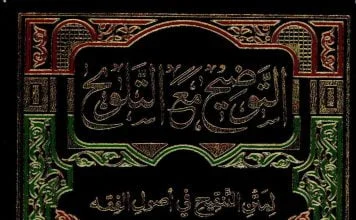 التوضيح مع التلويح
لمتن التنقيح في أصول الفقه